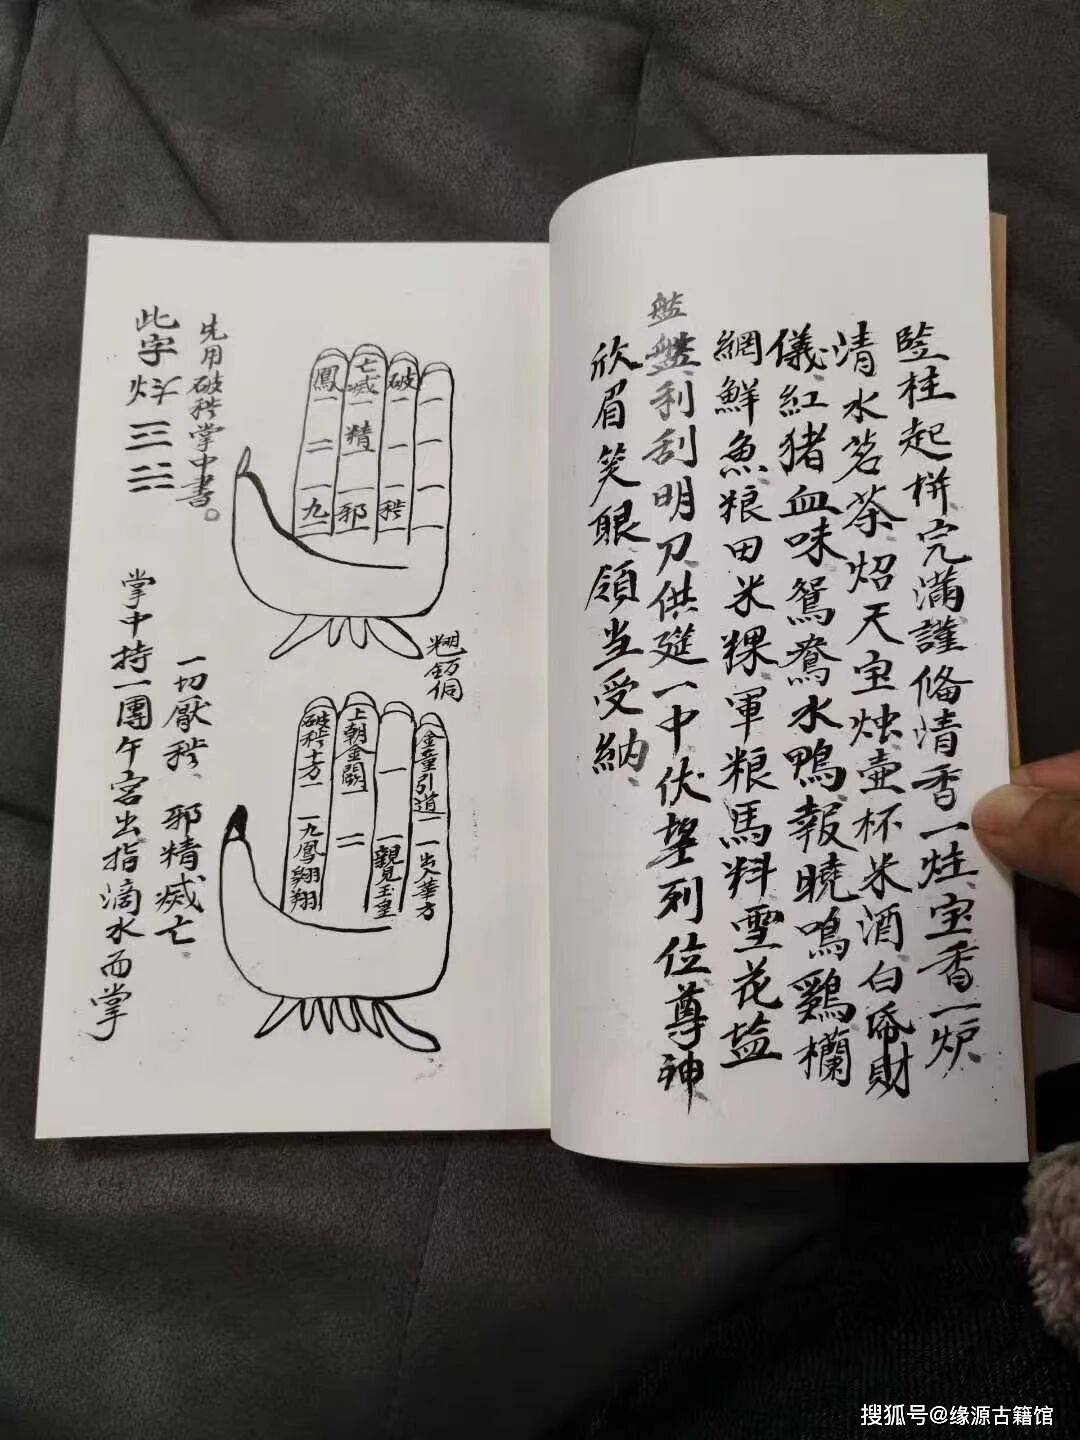 監柱起栟完滿謹俻清香一炷宝香一炉
清水茗茶炤天宝烛壶杯米酒白帋財
儀紅猪血味鴛鴦水鴨報曉鳴鷄欄
網鮮魚粮田米粿軍粮馬料雪花盐
盤利刮明刀供筵一中伏望列位尊神
欣眉笑眼領当受納
破 一 一 秽
亡 滅 一 精 一 邪
鳳 一 二 一 九 一
先用破秽掌中書。
此字烊三
金童引道一 一出入華方
一 一 親見玉皇
上朝金闕 一 二
破秽十方一 一九鳳翱翔
一切厭秽、邪精滅亡、
掌中持一團午宮出指滴水而掌
搜狐号@缘源古籍馆